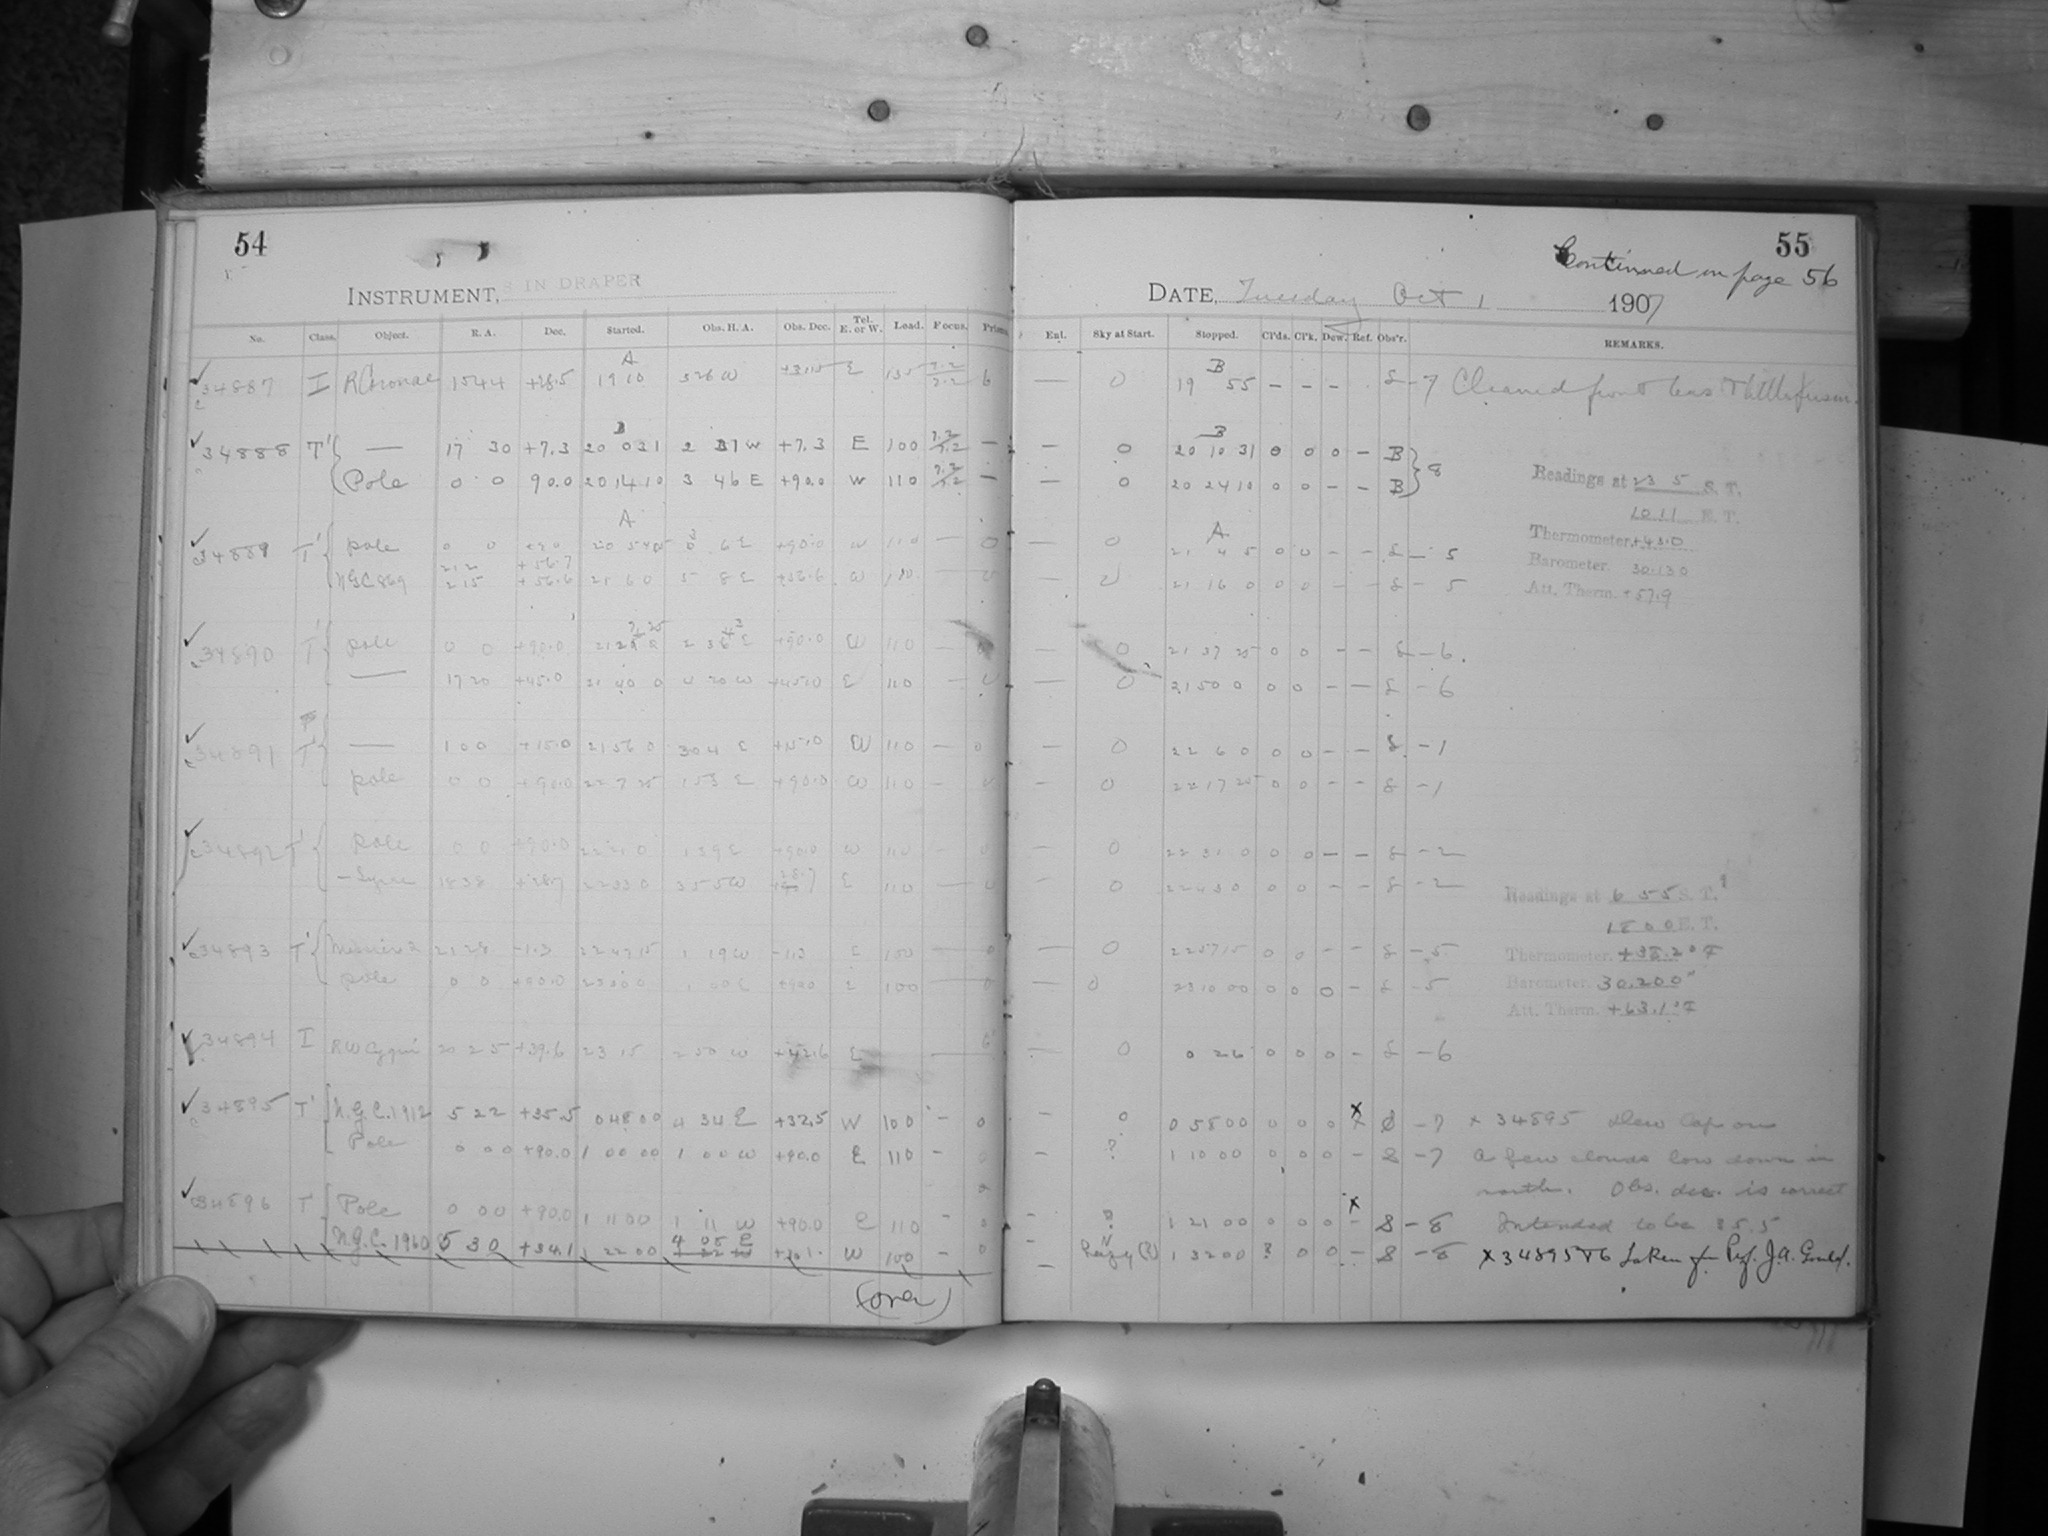 54
INSTRUMENT, IN DRAPER
No. Class. Object. R. A. Dec. Started. Obs. H. A. Obs. Dec. Tel. E. or W. Load. Focus.
A
34887 I R Coronae 1544 +28.5 19 10 326 W E 6
B
34888 T' — 17 30 +7.3 20 0 31 2 31 W +7.3 E 100 —
Pole 0 0 90.0 20 14 10 3 46 E +90.0 W 110 —
A
34889 T' Pole 0 0 +90.0 W 110 — 0
NGC 869 2 15 +56.6 21 6 0 5 8 E +56.6 W —
34890 T' Pole 0 0 +90.0 +90.0 W 110
— 17 20 +45.0 21 40 0 4 20 W +45.0 E 110 —
34891 T' — 1 00 +15.0 21 56 0 3 04 E +15.0 W 110 — 0
Pole 0 0 +90.0 22 7 25 1 53 E +90.0 W 110 —
34892 T' Pole 0 0 +90.0 22 21 0 1 39 E +90.0 W 110 — 0
— Lyrae 18 38 +28.7 22 33 0 3 55 W E 110 — 0
34893 T' Messier 2 21 28 -1.3 22 47 15 1 19 W -1.3 E 100 — 0
Pole 0 0 +90.0 23 00 0 1 00 E +90.0 E 100 — 0
34894 I RW Cygni 20 25 +39.6 23 15 2 50 W +42.6 E —
34895 T' N.G.C. 1912 5 22 +35.5 0 48 00 4 34 E +32.5 W 100 — 0
Pole 0 00 +90.0 1 00 00 1 00 W +90.0 E 110 —
34896 T Pole 0 00 +90.0 1 11 00 1 11 W +90.0 E 110 — 0
4 08 E
N.G.C. 1960 5 30 +34.1 1 22 00 1 22 W W 100 — 0
(over)
55
Continued on page 56
DATE, Tuesday Oct 1 1907
Ent. Sky at Start. Stopped. Cl'ds. Cl'k. Dew. Ref. Obs'r. REMARKS.
B
— 0 19 55 — — — S — 7 Cleaned front lens
B
— 0 20 10 31 0 0 0 — B
— 0 20 24 10 0 0 — — B } 8
A
— 0 21 4 5 0 0 — — S — 5
— 21 16 0 0 0 — — S — 5
— 0 21 37 25 0 0 S — 6.
— 0 21 50 0 0 0 — — S — 6
— 0 22 6 0 0 0 — — S — 1
— 0 22 17 25 0 0 — — S — 1
0 22 31 0 0 0 — — S — 2
0 22 43 0 0 0 — — S — 2
— 0 22 57 15 0 0 — — S — 5
— 0 23 10 00 0 0 0 — S — 5
— 0 0 26 0 0 0 — S — 6
— 0 0 58 00 0 0 0 x S — 7 x 34895 Dew Cap on
— ? 1 10 00 0 0 0 — S — 7 a few clouds low down in
north. Obs. dec. is correct
— 1 21 00 0 0 0 — S — 8 Intended to be 35.5
— hazy (?) 1 32 00 ? 0 0 — S — 8 x 34895 & 6 taken for Prof. J.A. Gould.
Readings at 23 5 S. T.
10 11 E. T.
Thermometer. +43.0
Barometer. 30.130
Att. Therm. +57.9
Readings at 6 55 S. T.
18 00 E. T.
Thermometer. +38.2° F
Barometer. 30.200"
Att. Therm. +63.1° F